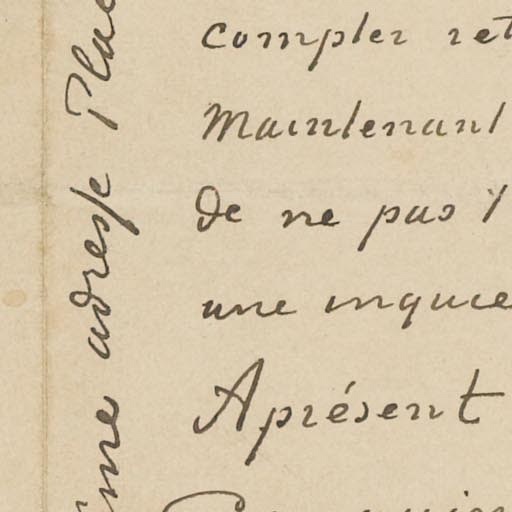 compter ret
Maintenant
de ne pas
une inquie
Aprésent
adresse Plac